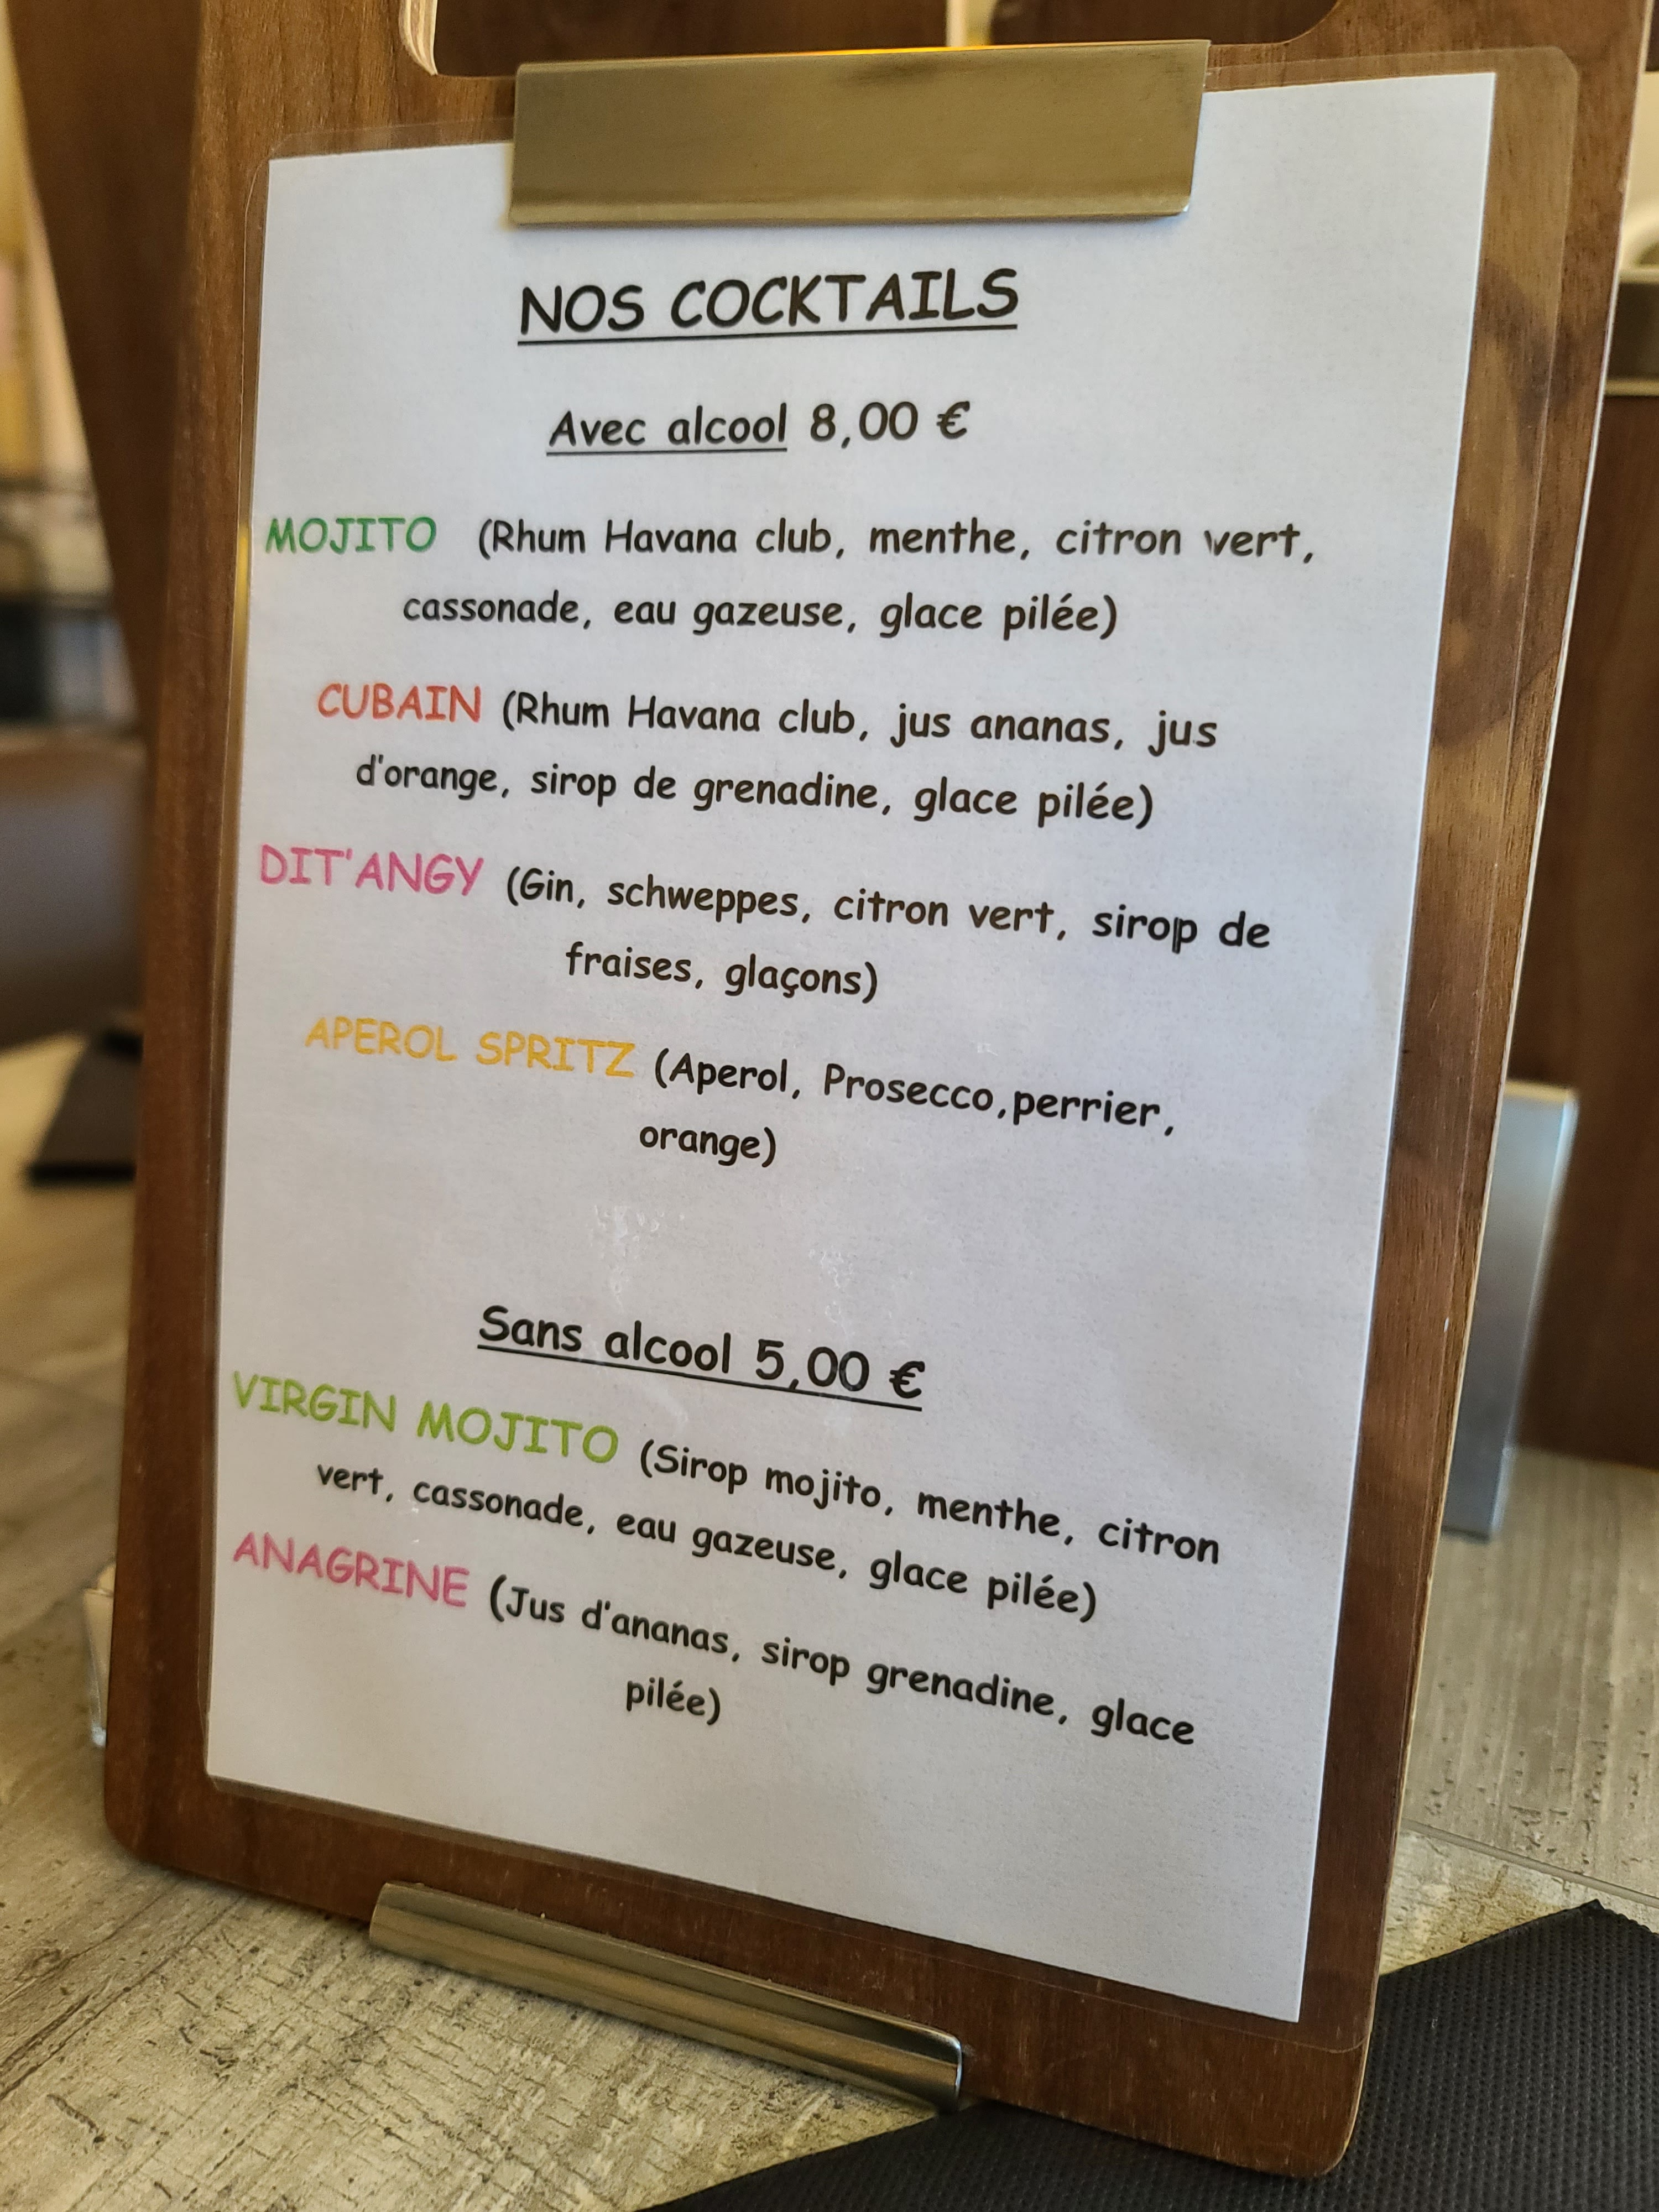 NOS COCKTAILS
Avec alcool 8,00 €
MOJITO (Rhum Havana club, menthe, citron vert,
cassonade, eau gazeuse, glace pilée)
CUBAIN (Rhum Havana club, jus ananas, jus
d'orange, sirop de grenadine, glace pilée)
DIT'ANGY (Gin, schweppes, citron vert, sirop de
fraises, glaçons)
APEROL SPRITZ (Aperol, Prosecco,perrier,
orange)
Sans alcool 5,00 €
VIRGIN MOJITO (Sirop mojito, menthe, citron
vert, cassonade, eau gazeuse, glace pilée)
ANAGRINE (Jus d'ananas, sirop grenadine, glace
pilée)